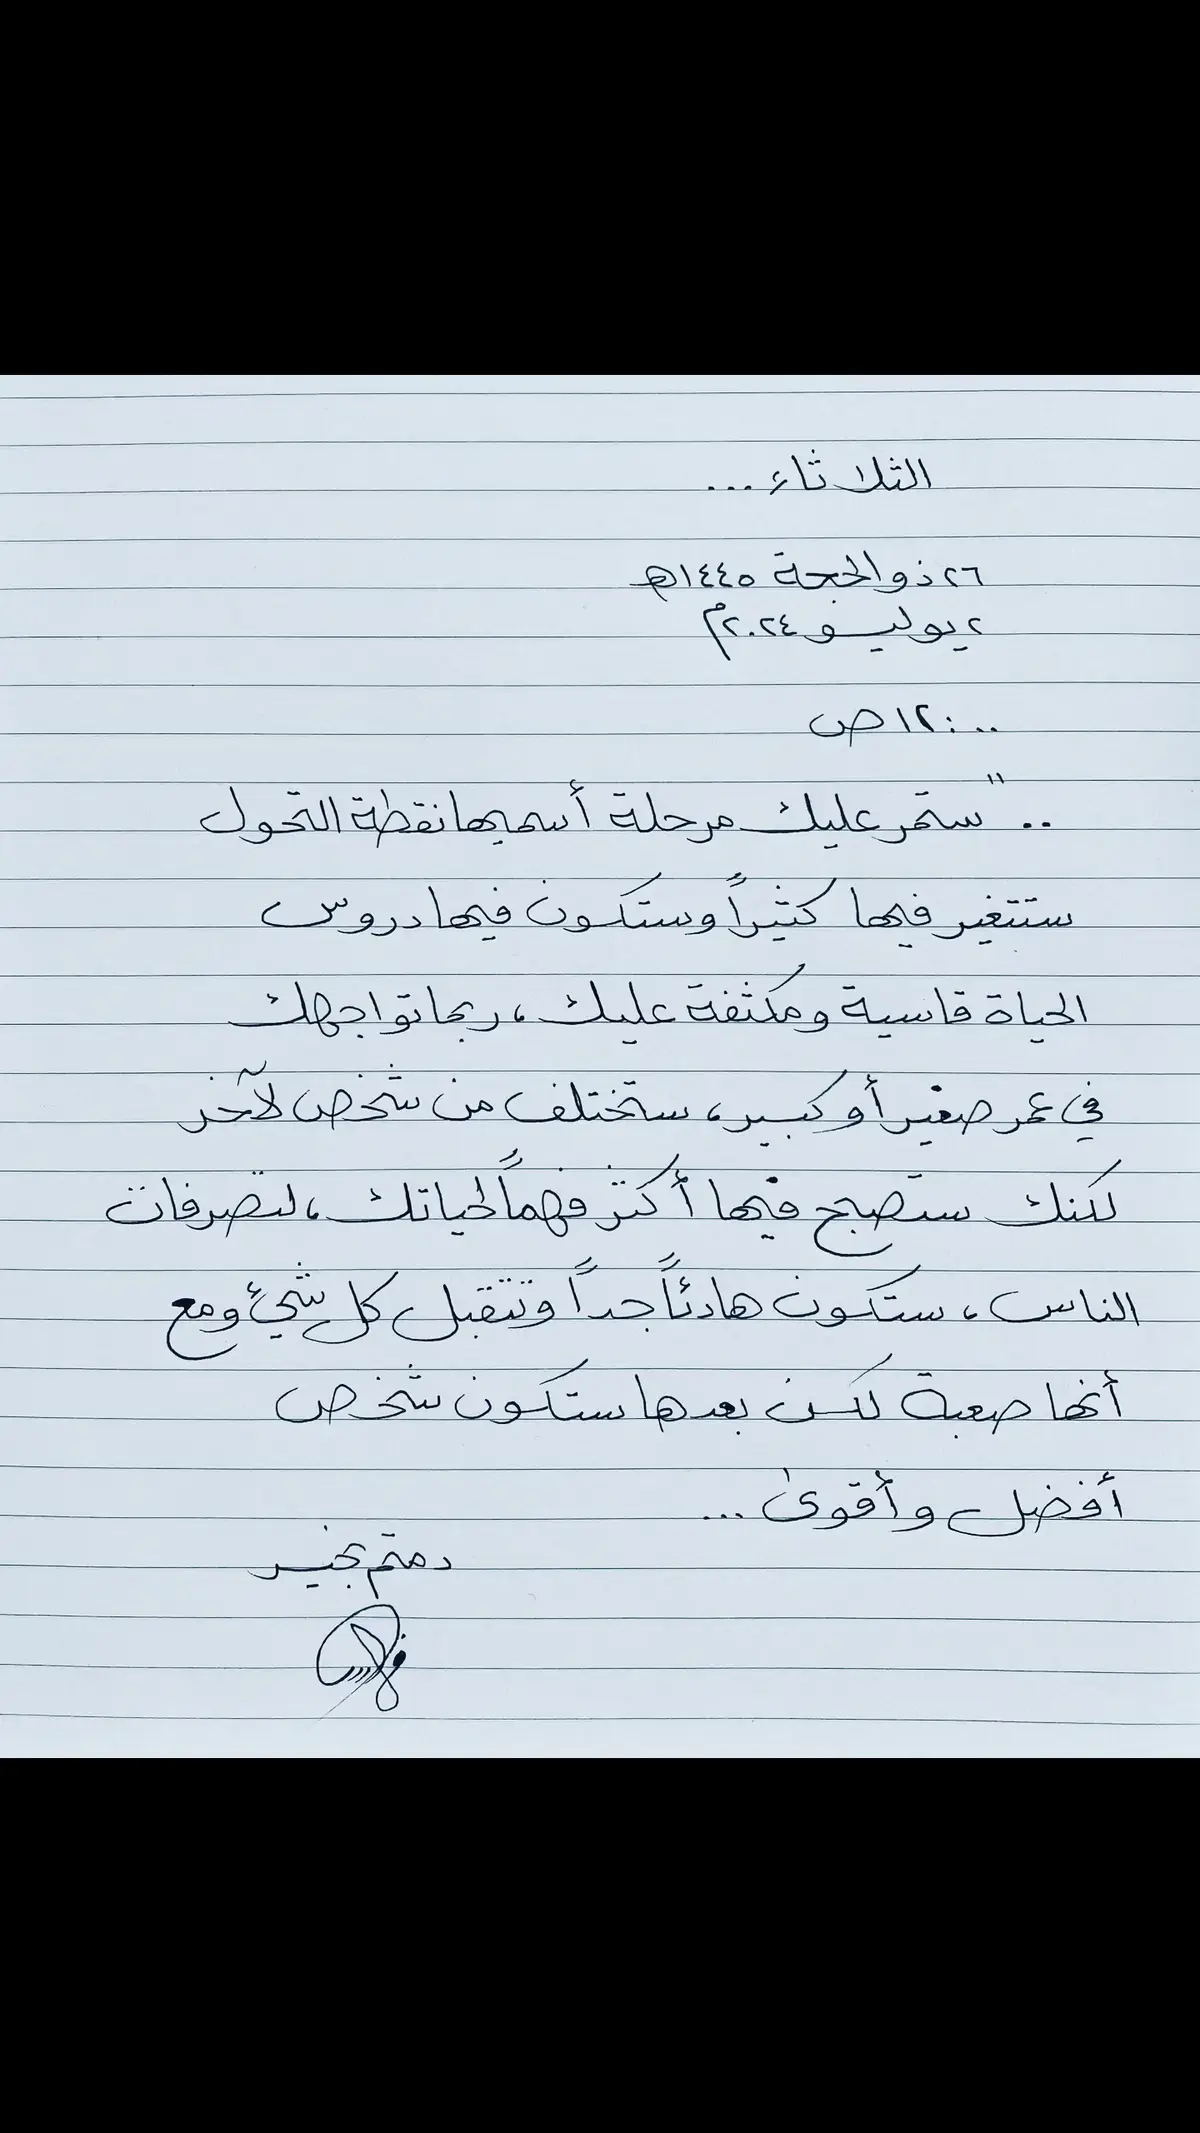 الثلاثاء ...
٢٦ ذو الحجة ١٤٤٥هـ
٢ يوليو ٢٠٢٤م
١٢:٠٠ ص
.. " ستمر عليك مرحلة أسميها نقطة التحول
ستتغير فيها كثيراً وستكون فيها دروس
الحياة قاسية ومكثفة عليك، ربما تواجهك
في عمر صغير أو كبير، ستختلف من شخص لآخر
لكنك ستصبح فيها أكثر فهماً لحياتك، لتصرفات
الناس، ستكون هادئاً جداً وتتقبل كل شيئ ومع
أنها صعبة لكن بعدها ستكون شخص
أفضل وأقوىٰ ...
دمتم بخير